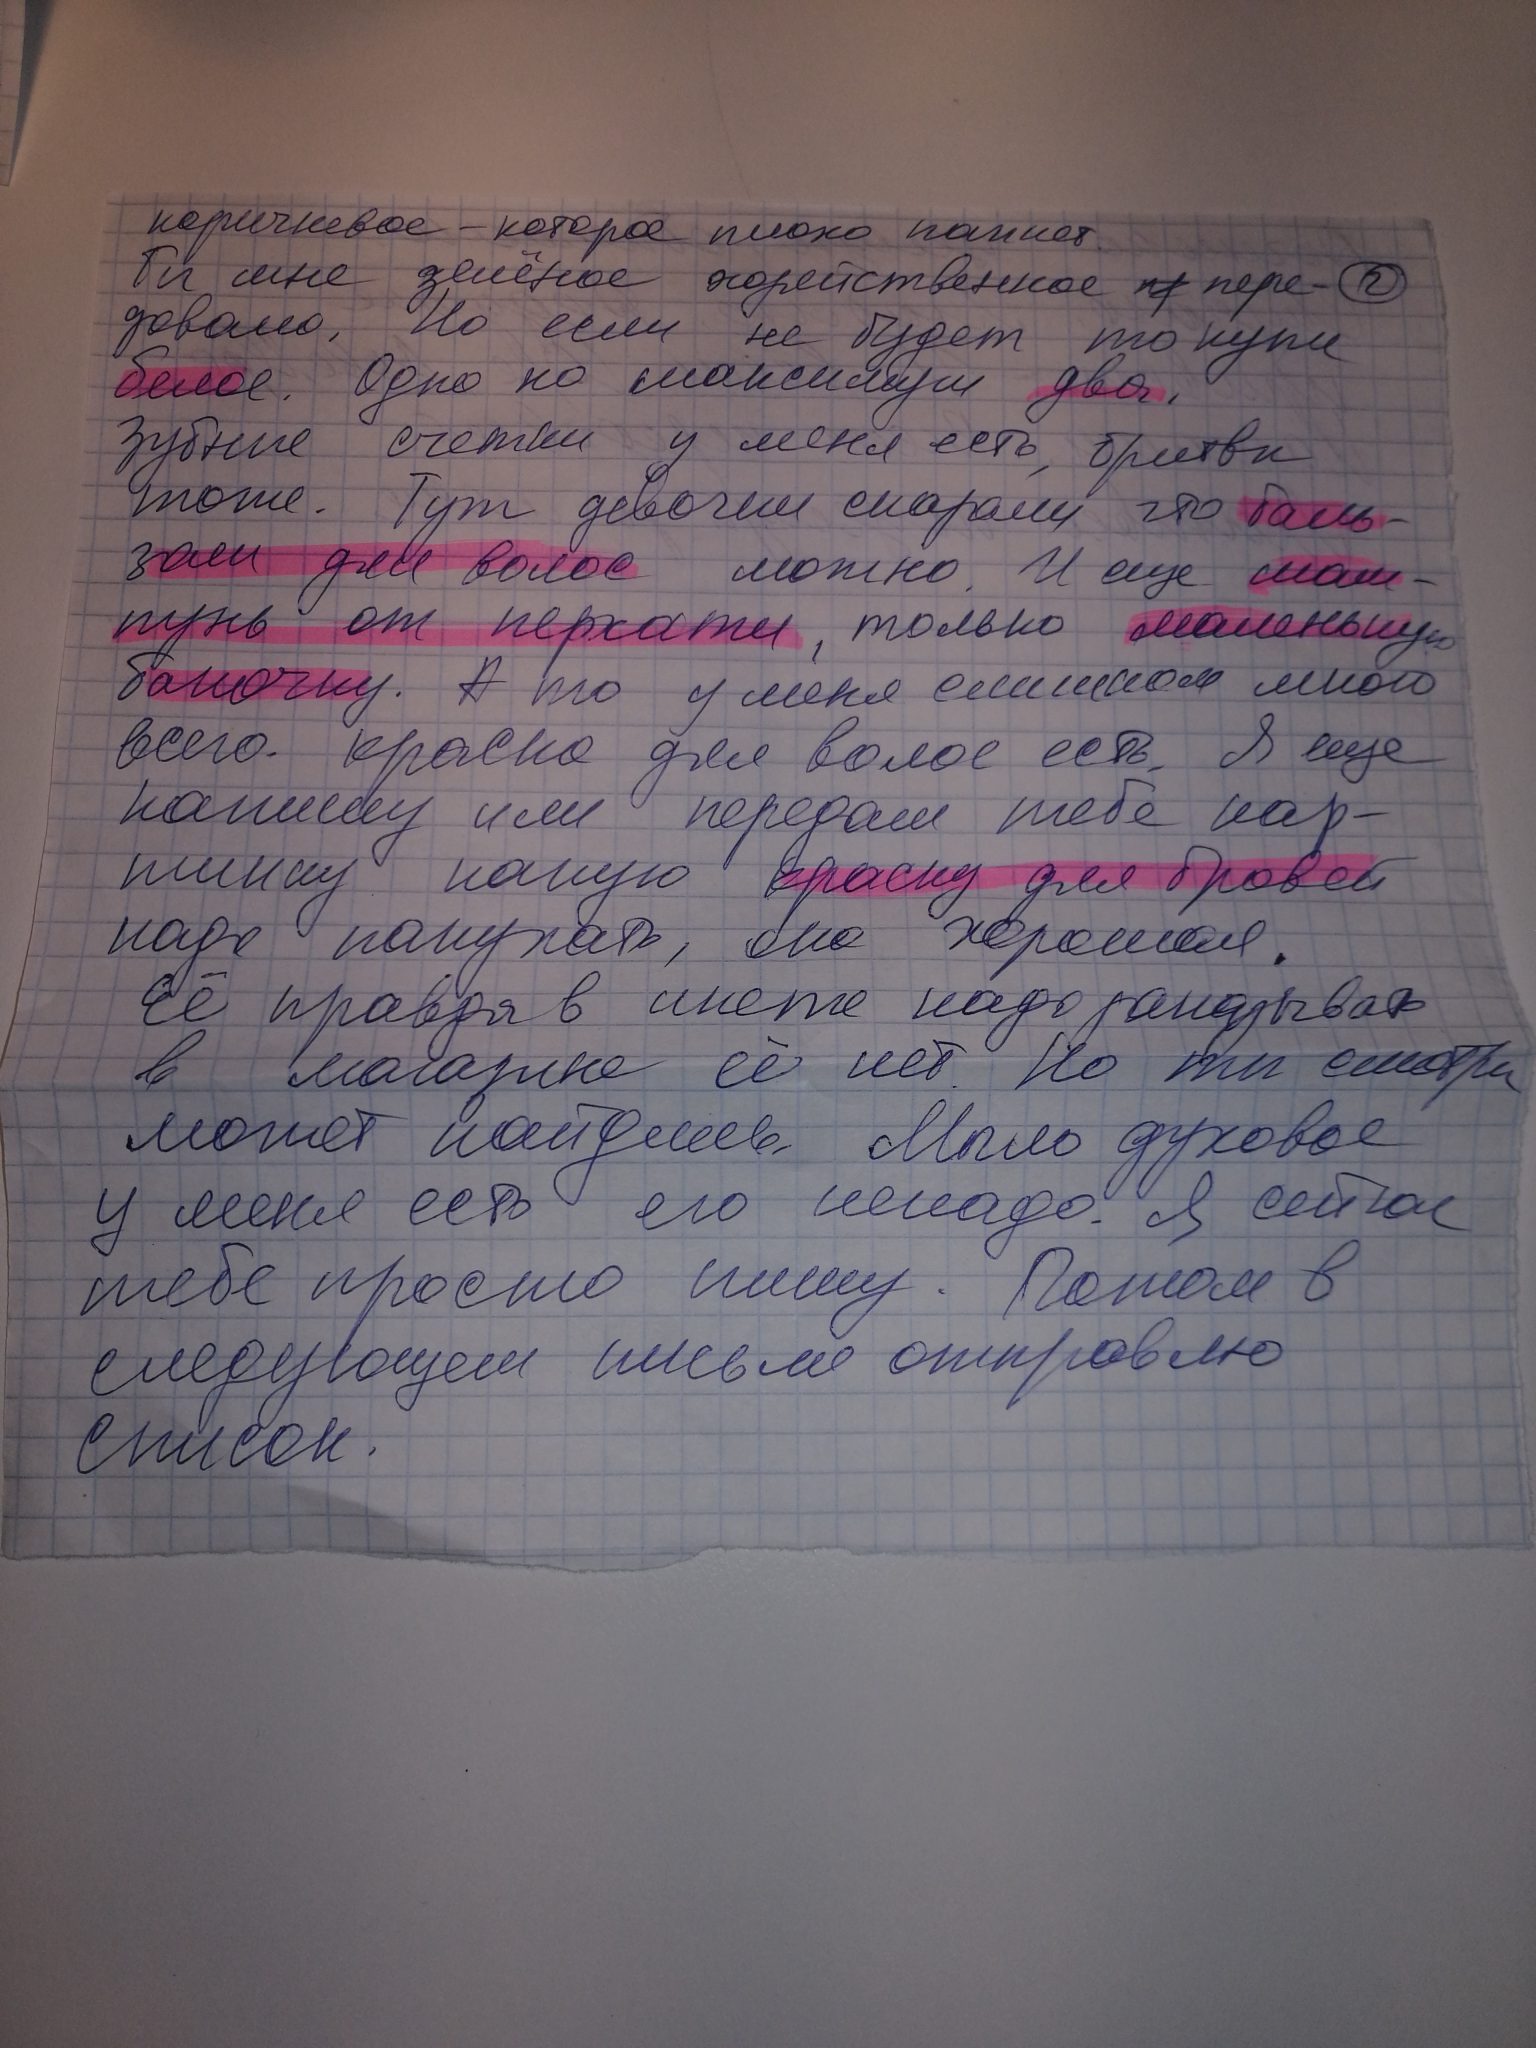 коричневое - которое плохо пахнет.
Ты мне зелёное хозяйственное пере- ②
давала. Но если не будет то купи
белое. Одно но максимум два.
Зубные счетки у меня есть, бритвы
тоже. Тут девочки сказали что баль-
зам для волос можно. И еще шам-
пунь от перхоти, только маленькую
баночку. А то у меня слишком много
всего. Краска для волос есть. Я еще
напишу или передам тебе кар-
тинку какую краску для бровей
надо покупать, она хорошая.
Её правда в инете надо заказывать
в магазине её нет. Но ты смотри
может найдешь. Мыло духовое
у меня есть его ненадо. Я сейчас
тебе просто пишу. Потом в
следующем письме отправлю
список.